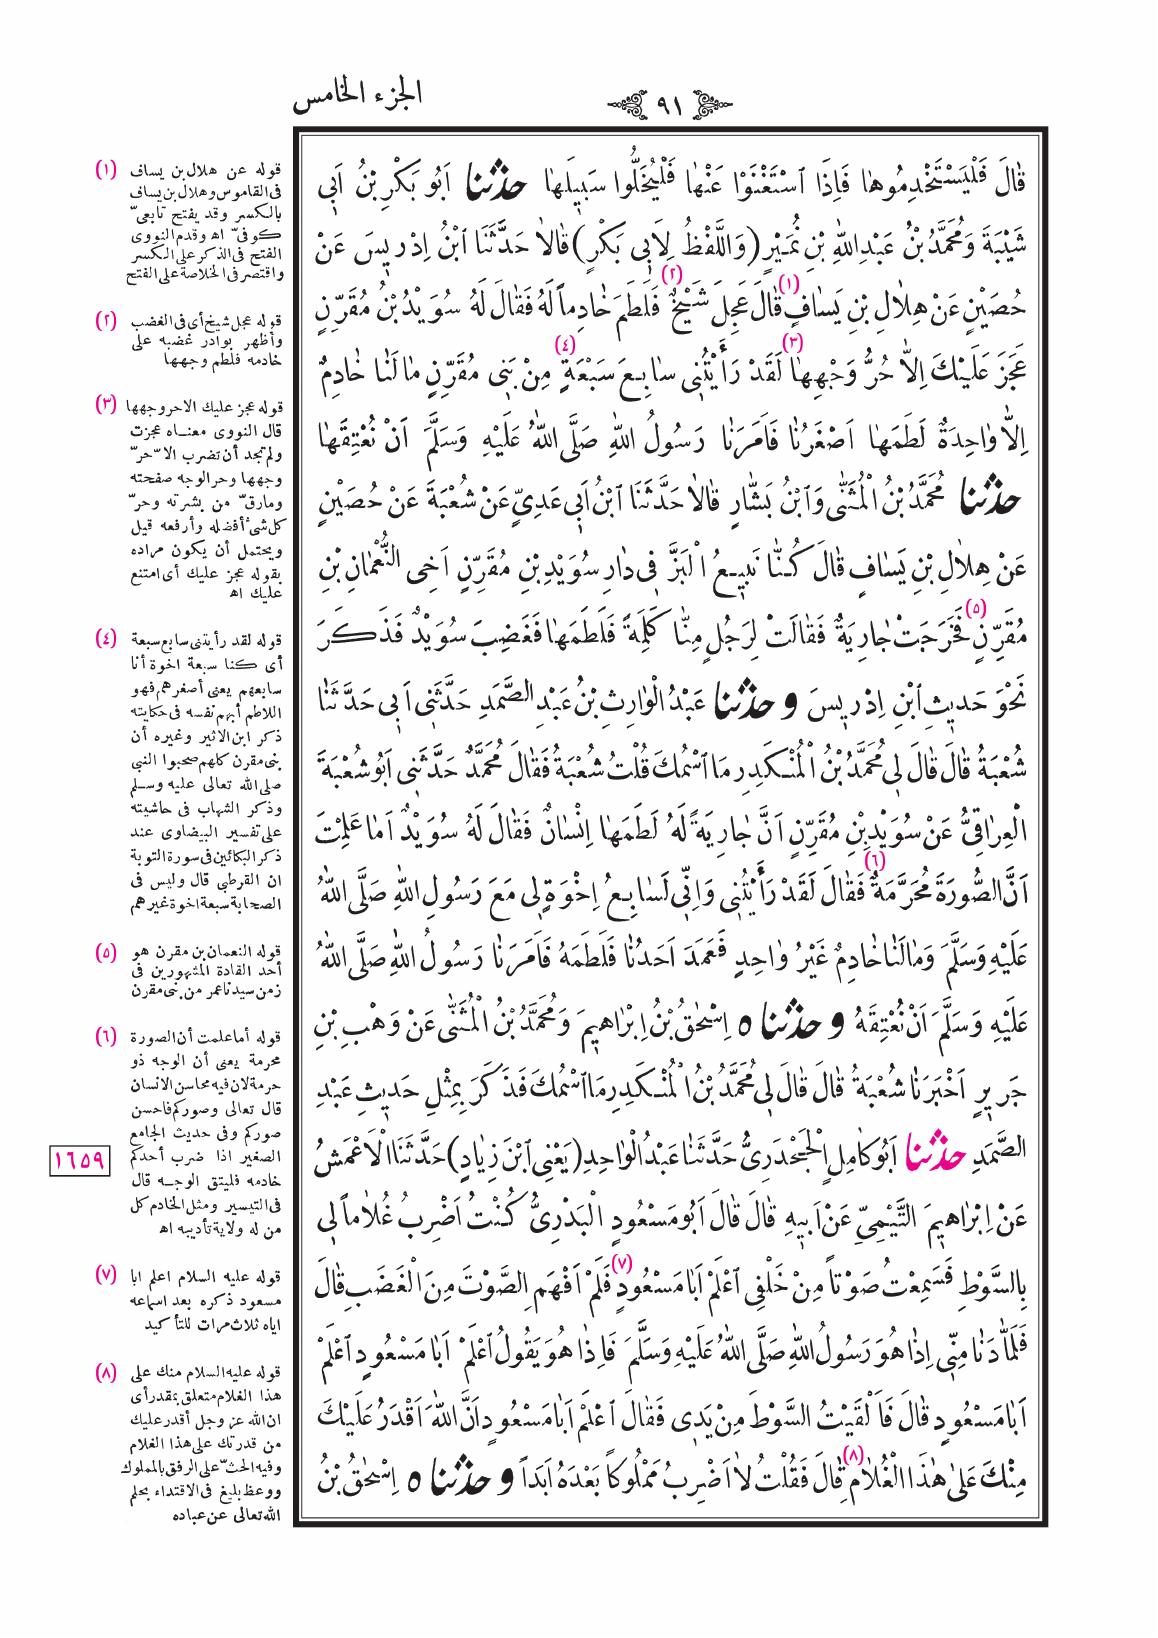 ٩١
الجزء الخامس
قَالَ فَلْيَسْتَخْدِمُوهَا فَإِذَا ٱسْتَغْنَوْا عَنْهَا فَلْيُخَلُّوا سَبِيلَهَا حدثنا اَبُو بَكْرِ بْنُ اَبِي
شَيْبَةَ وَمُحَمَّدُ بْنُ عَبْدِاللهِ بْنِ نُمَيْرٍ (وَاللَّفْظُ لِاَبِي بَكْرٍ) قَالاَ حَدَّثَنَا ٱبْنُ اِدْرِيسَ عَنْ
حُصَيْنٍ عَنْ هِلَالِ بْنِ يَسَافٍ (١) قَالَ عَجِلَ شَيْخٌ (٢) فَلَطَمَ خَادِماً لَهُ فَقَالَ لَهُ سُوَيْدُ بْنُ مُقَرِّنٍ
عَجَزَ عَلَيْكَ اِلاَّ حُرُّ وَجْهِهَا (٣) لَقَدْ رَأَيْتُنِي سَابِعَ سَبْعَةٍ (٤) مِنْ بَنِي مُقَرِّنٍ مَا لَنَا خَادِمٌ
اِلاَّ وَاحِدَةٌ لَطَمَهَا اَصْغَرُنَا فَاَمَرَنَا رَسُولُ اللهِ صَلَّى اللهُ عَلَيْهِ وَسَلَّمَ اَنْ نُعْتِقَهَا
حدثنا مُحَمَّدُ بْنُ الْمُثَنَّى وَٱبْنُ بَشَّارٍ قَالاَ حَدَّثَنَا ٱبْنُ اَبِي عَدِيٍّ عَنْ شُعْبَةَ عَنْ حُصَيْنٍ
عَنْ هِلاَلِ بْنِ يَسَافٍ قَالَ كُنَّا نَبِيعُ الْبَزَّ فِي دَارِ سُوَيْدِ بْنِ مُقَرِّنٍ اَخِي النُّعْمَانِ بْنِ
مُقَرِّنٍ (٥) فَخَرَجَتْ جَارِيَةٌ فَقَالَتْ لِرَجُلٍ مِنَّا كَلِمَةً فَلَطَمَهَا فَغَضِبَ سُوَيْدٌ فَذَكَرَ
نَحْوَ حَدِيثِ ٱبْنِ اِدْرِيسَ و حدثنا عَبْدُ الْوَارِثِ بْنُ عَبْدِ الصَّمَدِ حَدَّثَنِي اَبِي حَدَّثَنَا
شُعْبَةُ قَالَ قَالَ لِي مُحَمَّدُ بْنُ الْمُنْكَدِرِ مَا ٱسْمُكَ قُلْتُ شُعْبَةُ فَقَالَ مُحَمَّدٌ حَدَّثَنِي اَبُو شُعْبَةَ
الْعِرَاقِيُّ عَنْ سُوَيْدِ بْنِ مُقَرِّنٍ اَنَّ جَارِيَةً لَهُ لَطَمَهَا اِنْسَانٌ فَقَالَ لَهُ سُوَيْدٌ اَمَا عَلِمْتَ
اَنَّ الصُّورَةَ مُحَرَّمَةٌ (٦) فَقَالَ لَقَدْ رَأَيْتُنِي وَاِنِّي لَسَابِعُ اِخْوَةٍ لِي مَعَ رَسُولِ اللهِ صَلَّى اللهُ
عَلَيْهِ وَسَلَّمَ وَمَا لَنَا خَادِمٌ غَيْرُ وَاحِدٍ فَعَمَدَ اَحَدُنَا فَلَطَمَهُ فَاَمَرَنَا رَسُولُ اللهِ صَلَّى اللهُ
عَلَيْهِ وَسَلَّمَ اَنْ نُعْتِقَهُ و حدثنا ه اِسْحٰقُ بْنُ اِبْرَاهِيمَ وَمُحَمَّدُ بْنُ الْمُثَنَّى عَنْ وَهْبِ بْنِ
جَرِيرٍ اَخْبَرَنَا شُعْبَةُ قَالَ قَالَ لِي مُحَمَّدُ بْنُ الْمُنْكَدِرِ مَا ٱسْمُكَ فَذَكَرَ بِمِثْلِ حَدِيثِ عَبْدِ
الصَّمَدِ حدثنا اَبُو كَامِلٍ الْجَحْدَرِيُّ حَدَّثَنَا عَبْدُ الْوَاحِدِ (يَعْنِي ٱبْنَ زِيَادٍ) حَدَّثَنَا الْاَعْمَشُ
عَنْ اِبْرَاهِيمَ التَّيْمِيِّ عَنْ اَبِيهِ قَالَ قَالَ اَبُو مَسْعُودٍ الْبَدْرِيُّ كُنْتُ اَضْرِبُ غُلَاماً لِي
بِالسَّوْطِ فَسَمِعْتُ صَوْتاً مِنْ خَلْفِي ٱعْلَمْ اَبَا مَسْعُودٍ (٧) فَلَمْ اَفْهَمِ الصَّوْتَ مِنَ الْغَضَبِ قَالَ
فَلَمَّا دَنَا مِنِّي اِذَا هُوَ رَسُولُ اللهِ صَلَّى اللهُ عَلَيْهِ وَسَلَّمَ فَاِذَا هُوَ يَقُولُ ٱعْلَمْ اَبَا مَسْعُودٍ ٱعْلَمْ
اَبَا مَسْعُودٍ قَالَ فَاَلْقَيْتُ السَّوْطَ مِنْ يَدِي فَقَالَ ٱعْلَمْ اَبَا مَسْعُودٍ اَنَّ اللهَ اَقْدَرُ عَلَيْكَ
مِنْكَ عَلَى هٰذَا الْغُلاَمِ (٨) قَالَ فَقُلْتُ لاَ اَضْرِبُ مَمْلُوكاً بَعْدَهُ اَبَداً و حدثنا ه اِسْحٰقُ بْنُ
(١) قوله عن هلال بن يساف
فى القاموس وهلال بن يساف
بالكسر وقد يفتح تابعىّ
كوفىّ اه وقدم النووى
الفتح فى الذكر على الكسر
واقتصر فى الخلاصة على الفتح
(٢) قوله عجل شيخ أى فى الغضب
وأظهر بوادر غضبه على
خادمه فلطم وجهها
(٣) قوله عجز عليك الا حر وجهها
قال النووى معناه عجزت
ولم تجد أن تضرب الا حرّ
وجهها وحر الوجه صفحته
ومارقّ من بشرته وحرّ
كل شئ أفضله وأرفعه قيل
ويحتمل أن يكون مراده
بقوله عجز عليك أى امتنع
عليك اه
(٤) قوله لقد رأيتنى سابع سبعة
أى كنا سبعة اخوة أنا
سابعهم يعنى أصغرهم فهو
اللاطم أبهم نفسه فى حكايته
ذكر ابن الاثير وغيره أن
بنى مقرن كلهم صحبوا النبى
صلى الله تعالى عليه وسلم
وذكر الشهاب فى حاشيته
على تفسير البيضاوى عند
ذكر البكائين فى سورة التوبة
ان القرطبى قال وليس فى
الصحابة سبعة اخوة غيرهم
(٥) قوله النعمان بن مقرن هو
أحد القادة المشهورين فى
زمن سيدنا عمر من بنى مقرن
(٦) قوله أما علمت أن الصورة
محرمة يعنى أن الوجه ذو
حرمة لان فيه محاسن الانسان
قال تعالى وصوركم فاحسن
صوركم وفى حديث الجامع
الصغير اذا ضرب أحدكم
خادمه فليتق الوجه قال
فى التيسير ومثل الخادم كل
من له ولاية تأديبه اه
١٦٥٩
(٧) قوله عليه السلام اعلم ابا
مسعود ذكره بعد اسماعه
اياه ثلاث مرات للتأكيد
(٨) قوله عليه السلام منك على
هذا الغلام متعلق بمقدر أى
ان الله عز وجل أقدر عليك
من قدرتك على هذا الغلام
وفيه الحثّ على الرفق بالمملوك
ووعظ بليغ فى الاقتداء بحلم
الله تعالى عن عباده